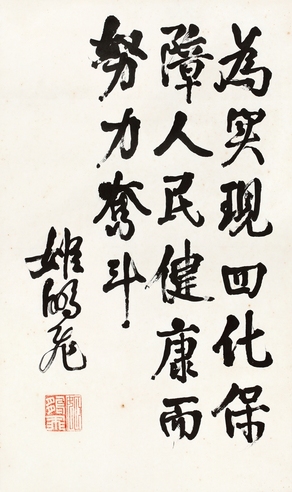 為实現四化保
障人民健康而
努力奮斗
姬鹏飛